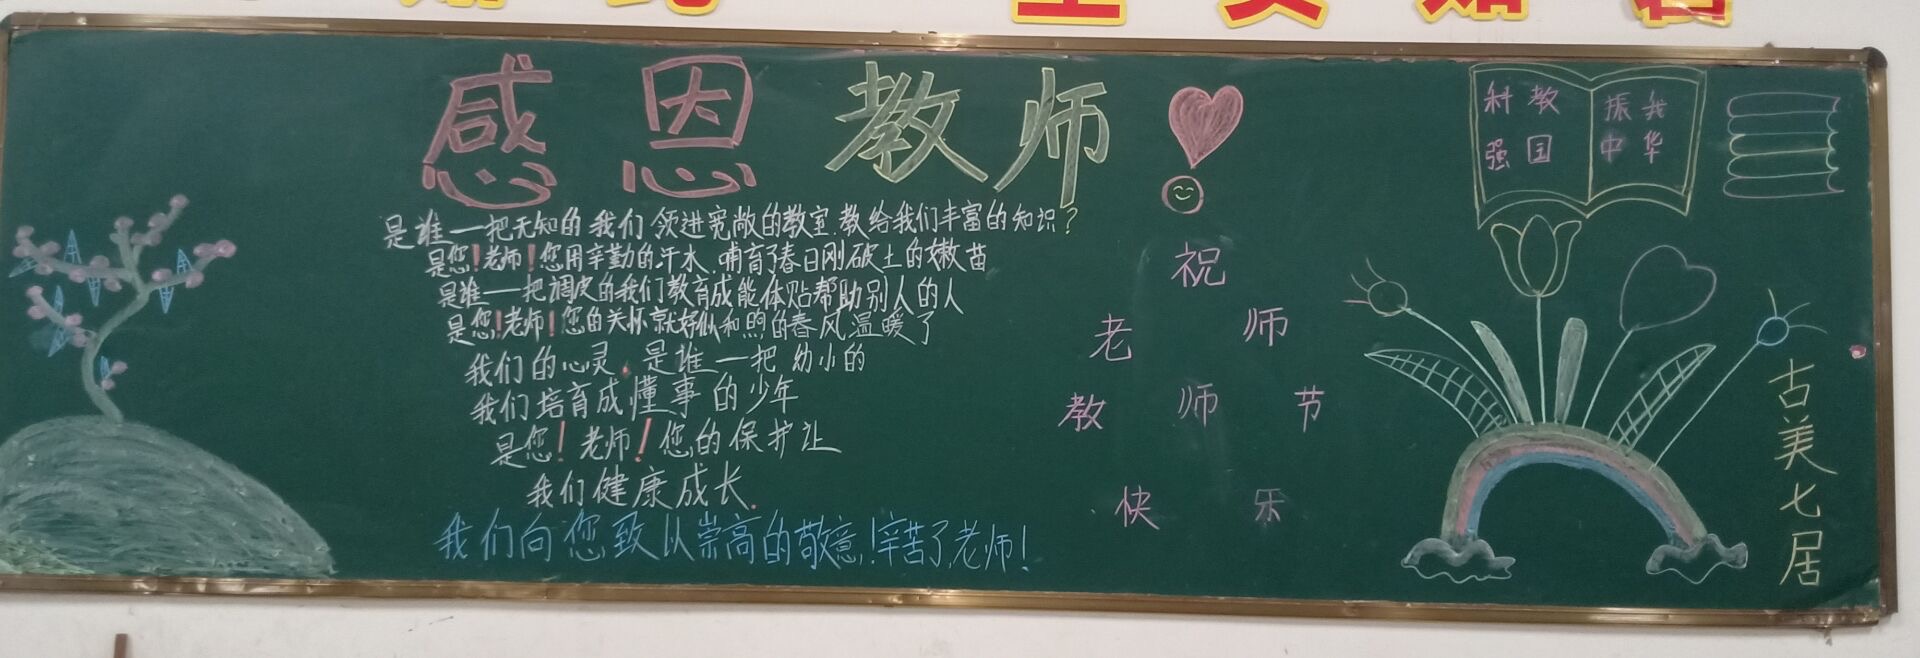 感恩教师
是谁一把无知的我们领进宽敞的教室.教给我们丰富的知识？
是您！老师！您用辛勤的汗水.哺育了春日刚破土的嫩苗
是谁一把调皮的我们教育成能体贴帮助别人的人
是您！老师！您的关怀就好似和煦的春风,温暖了
我们的心灵.是谁一把幼小的
我们培育成懂事的少年
是您！老师！您的保护让
我们健康成长.
我们向您致以崇高的敬意,!辛苦了,老师!
祝
老师
教师节
快乐
科教 振我
强国 中华
古美七居